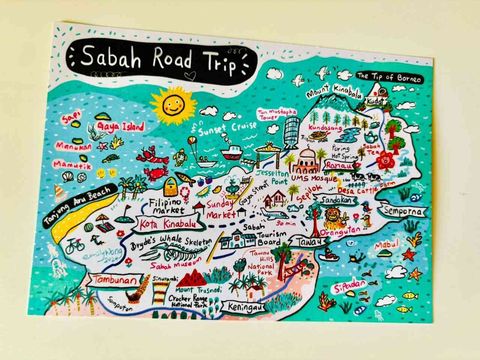 Sabah Road Trip
The Tip of Borneo
Mount Kinabalu
Kudat
Sapi
Gaya Island
Manukan
Mamutik
Sunset Cruise
Tun Mustapha
Tower
Kundasang
Poring
Hot Spring
Sabah
Tea
Ranau
Jesselton
Point
UMS Mosque
Desa Cattle Farm
Tanjung Aru Beach
Filipino
Market
Sunday
Market
Gaya Street
Sepilok
Sandakan
Semporna
Kota Kinabalu
Orangutan
Bryde's Whale Skeleton
Sabah
Tourism
Board
Tawau
Mabul
Sabah Museum
Tawau
Hills
National
Park
Tambunan
Sinurambi
Mount Trusmadi
Crocker Range
National Park
Keningau
Sipadan